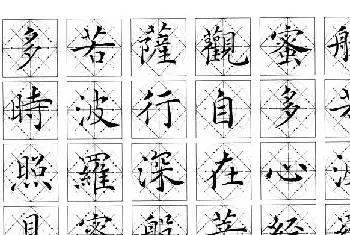 般若波羅
蜜多心經
觀自在菩
薩行深般
若波羅蜜
多時照見